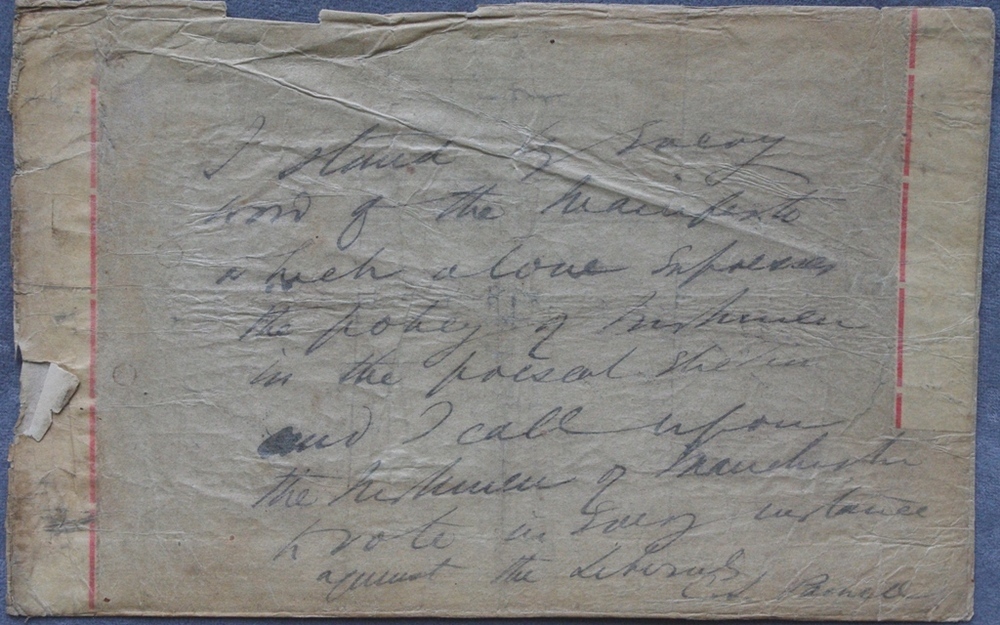 I stand by every
word of the Manifesto
which alone expresses
the policy of Irishmen
in the present Election
and I call upon
the Irishmen of Manchester
to vote in every instance
against the Liberals
C S Parnell